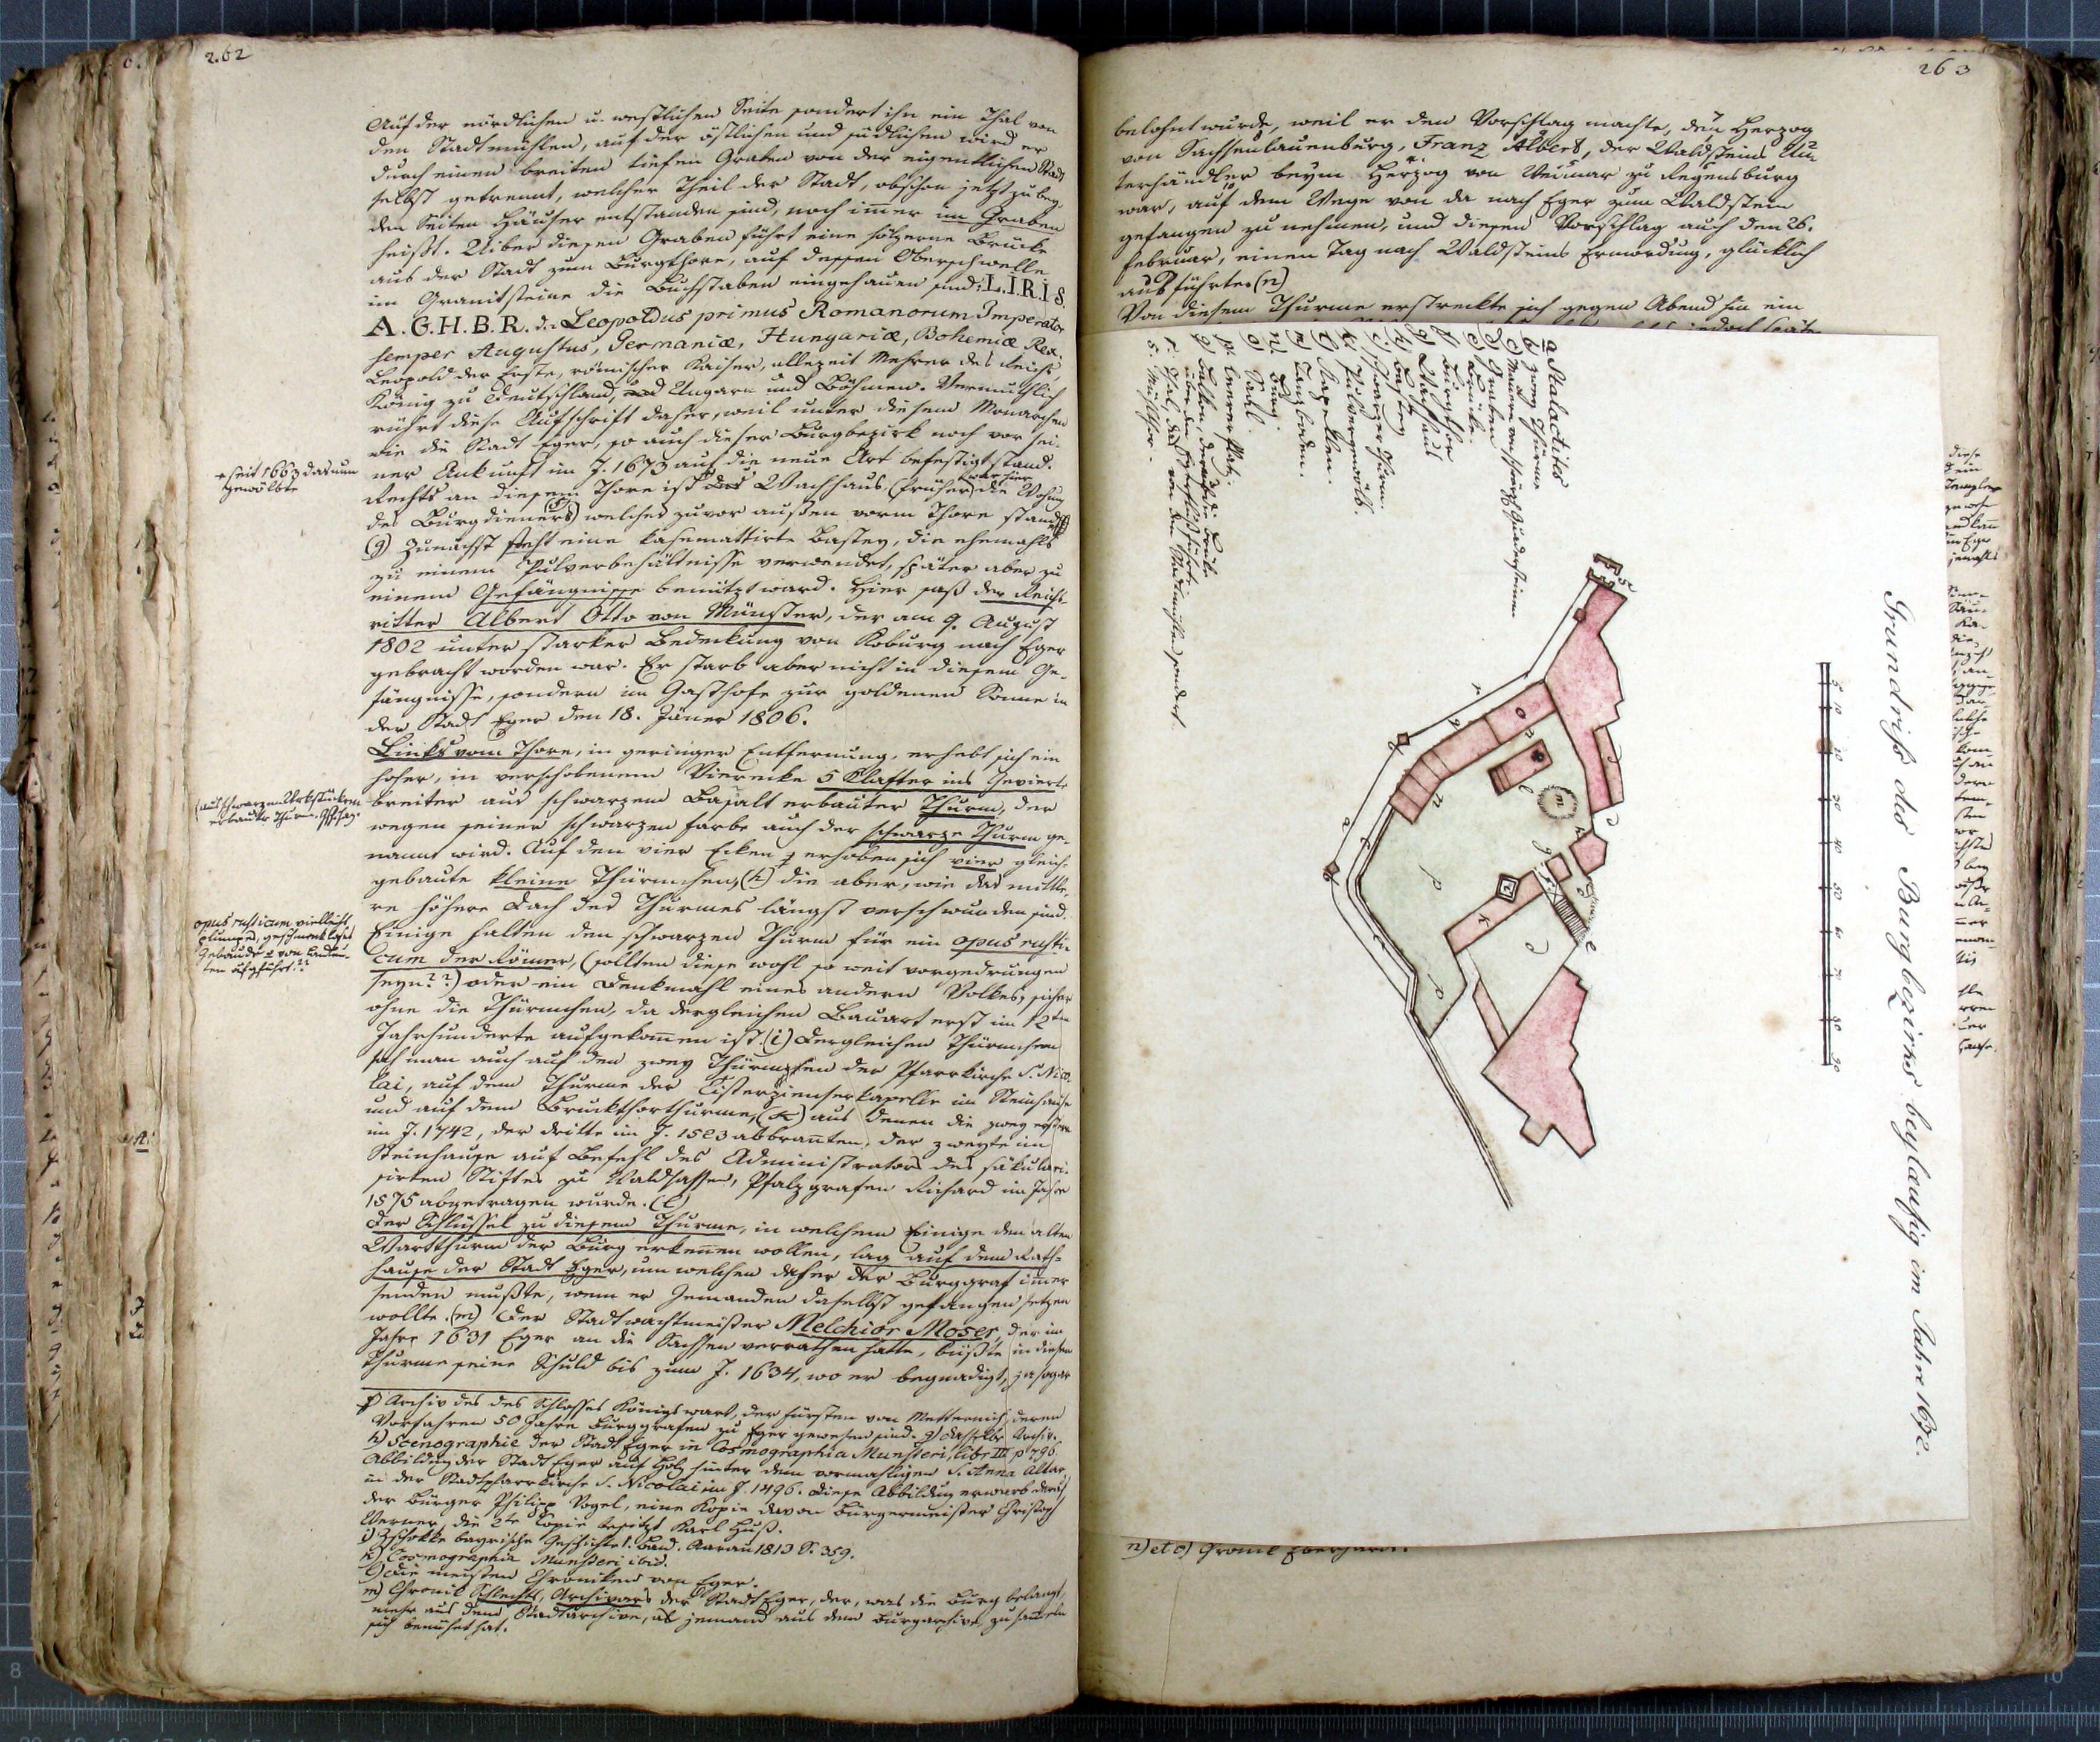 262
Auf der nördlichen u. westlichen Seite sondert ihn ein Thal von
den Stadtmühlen, auf der östlichen und südlichen wird er
durch einen breiten tiefen Graben von der eigentlichen Stadt
selbst getrennt, welcher Theil der Stadt, obschon jetzt zu bey-
den Seiten Häuser entstanden sind, noch im̄er im Graben
heißt. Uiber diesen Graben führt eine hölzerne Brücke
aus der Stadt zum Burgthore, auf dessen Oberschwelle
im Granitsteine die Buchstaben eingehauen sind: L.I.R.I.S.
A.G.H.B.R. d.i. Leopoldus primus Romanorum Imperator
semper Augustus, Germaniæ, Hungariæ, Bohemiæ Rex.
Leopold der Erste, römischer Kaiser, allezeit Mehrer des Reichs,
König zu Deutschland, Ungarn und Böhmen. Vermuthlich
rührt diese Aufschrift daher, weil unter diesem Monarchen
wie die Stadt Eger, so auch dieser Burgbezirk noch vor sei-
ner Ankunft im J. 1673 auf die neue Art befestigt stand.
Rechts an diesem Thore ist das Wachhaus, (früher war hier die Wohnung
des Burgdieners) welches zuvor außen vorm Thore stand
(g) Zunächst steht eine kasemattirte Bastey, die ehemahls
zu einem Pulverbehältnisse verwendet, später aber zu
einem Gefängnisse benützt ward. Hier saß der Reichs-
ritter Albert Otto von Münster, der am 9. August
1802 unter starker Bedeckung von Koburg nach Eger
gebracht worden war. Er starb aber nicht in diesem Ge-
fängnisse, sondern im Gasthofe zur goldenen Sonne in
der Stadt Eger den 18. Jäner 1806.
Links vom Thore, in geringer Entfernung, erhebt sich ein
hoher, in verschobenem Vierecke 5 Klafter ins Gevierte
breiter aus schwarzem Basalt erbauter Thurm, der
wegen seiner schwarzen Farbe auch der schwarze Thurm ge-
nannt wird. Auf den vier Ecken erhoben sich vier gleich-
gebaute kleine Thürmchen, (h) die aber, wie das mittle-
re höhere Dach des Thurmes längst verschwunden sind.
Einige halten den schwarzen Thurm für ein opus rusti-
cum der Römer, (sollten diese wohl so weit vorgedrungen
seyn??) oder ein Denkmahl eines andern Volkes, sicher
ohne die Thürmchen, da dergleichen Bauart erst im 12ten
Jahrhunderte aufgekom̄en ist. (i) Dergleichen Thürmchen
sah man auch auf den zwey Thürmen der Pfarrkirche S. Nico-
lai, auf dem Thurme der Cisterzienserkapelle im Steinhause
und auf dem Bruckthorthurme, (k) aus denen die zwey ersten
im J. 1742, der dritte im J. 1523 abbrannten, der zweyte im
Steinhause auf Befehl des Administrators des säkulari-
sirten Stiftes zu Waldsassen, Pfalzgrafen Richard im Jahre
1575 abgetragen wurde. (l)
Der Schlüssel zu diesem Thurme, in welchem Einige den alten
Wartthurm der Burg erkennen wollen, lag auf dem Rath-
hause der Stadt Eger, um welchen daher der Burggraf im̄er
senden mußte, wenn er Jemanden daselbst gefangen setzen
wollte. (m) Der Stadtwachtmeister Melchior Moser, der im
Jahre 1631 Eger an die Sachsen verrathen hatte, büßte in diesem
Thurme seine Schuld bis zum J. 1634, wo er begnadigt, ja sogar
f) Archiv des des Schlosses Königswart, der Fürsten von Metternich, deren
Vorfahren 50 Jahre Burggrafen zu Eger gewesen sind. g) dasselbe Archiv.
h) Scenographie der Stadt Eger in Cosmographia Munsteri, libr III p 796.
Abbildung der Stadt Eger auf Holz hinter dem vormahligen S. Anna Altar
in der Stadtpfarrkirche S. Nicolai im J. 1496. Diese Abbildung erwarb
der Bürger Philipp Vogel, eine Kopie davon Bürgermeister Christoph
Werner, die 2te Copie besitzt Karl Huß.
i) Zschokke bayrische Geschichte 1. Band. Aarau 1813 S. 359.
k) Cosmographia Munsteri ibid.
l) Die meisten Chroniken von Eger.
m) Chronik Schlechts, Archivars der Stadt Eger, der, was die Burg belangt,
mehr aus dem Stadtarchive, als jemand aus dem Burgarchive zu sam̄eln
sich bemühet hat.
seit 1663 das nun
gewölbte
(aus schwarzen Werkstücken
erbauter Thurm.
opus rusticum vielleicht
plumpes, geschmackloses
Gebäude von Landleu-
ten aufgeführt??
263
belohnt wurde, weil er den Vorschlag machte, den Herzog
von Sachsenlauenburg, Franz Albert, der Waldsteins Un-
terhändler beym Herzog von Weimar zu Regensburg
war, auf dem Wege von da nach Eger zum Waldstein
gefangen zu nehmen, und diesen Vorschlag auch den 26.
Februar, einen Tag nach Waldsteins Ermordung, glücklich
ausführte. (n)
Von diesem Thurme erstreckte sich gegen Abend hin ein
Grundriß des Burgbezirks beyläufig im Jahre 1692.
a Stalactites
b zwey Thürme
d Graben
e Brücke
f Burgthor
g Wachhaus
h Bastey
i schwarzer Thurm.
k Pulvergewölb.
l Kapellen.
m Tanzboden.
n Burg.
o Saal.
p leerer Platz.
s. Mühlthor.
5 10 20 30 40 50 60 70 80 90
n) et o) Chronik